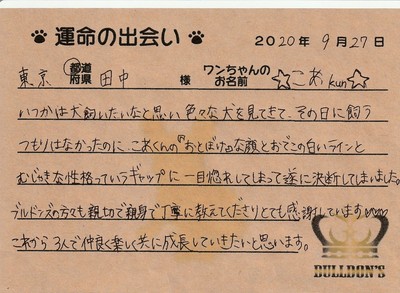 運命の出会い 2020年9月27日
東京 都道府県 田中 様 ワンちゃんのお名前 ☆こあkun☆
いつかは犬飼いたいなと思い色々な犬を見てきて、その日に飼う
つもりはなかったのに、こあくんの『おとぼけ』な顔とおでこの白いラインと
むじゃきな性格っていうギャップに一目惚れしてしまって遂に決断してしまいました。
ブルドンズの方々も親切で親身で丁寧に教えてくださりとても感謝しています♡♡♡
これから3人で仲良く楽しく共に成長していきたいと思います。
BULLDON'S